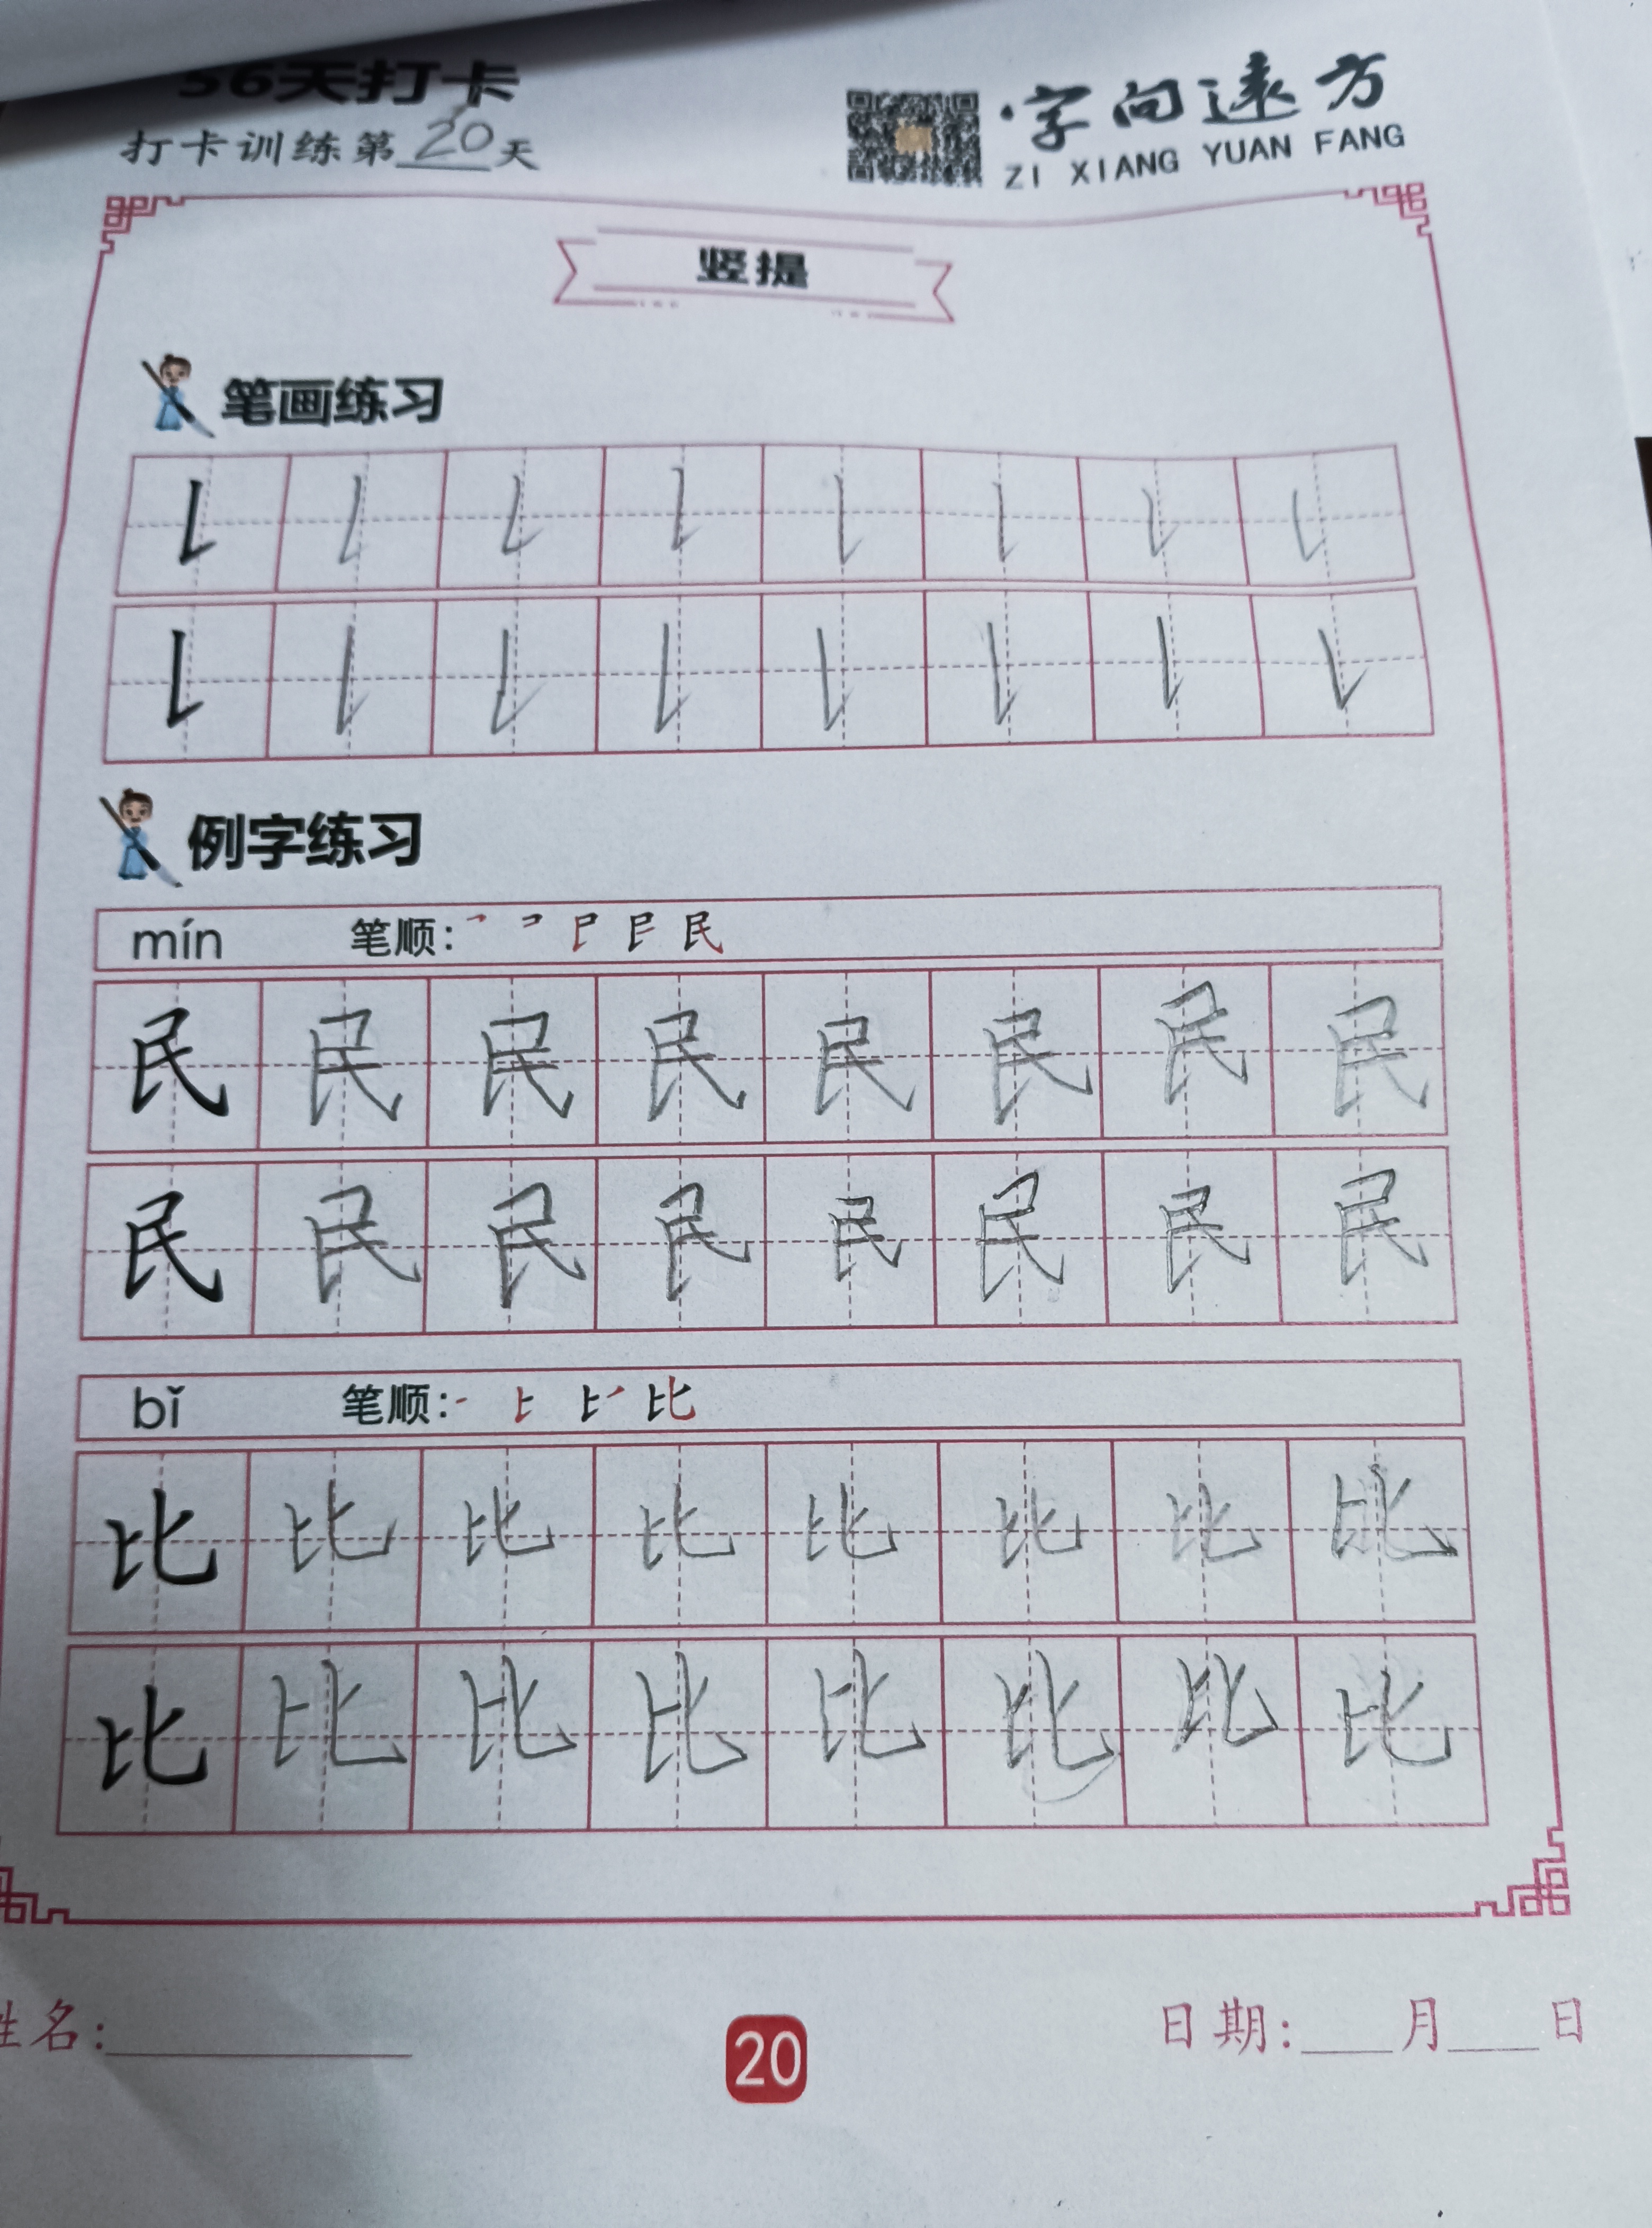 56天打卡
打卡训练第20天
·字向远方
ZI XIANG YUAN FANG
竖提
笔画练习
例字练习
mín 笔顺: 民
民 民 民 民 民 民 民 民
民 民 民 民 民 民 民 民
bǐ 笔顺: 比
比 比 比 比 比 比 比 比
比 比 比 比 比 比 比 比
姓名:
20
日期: 月 日